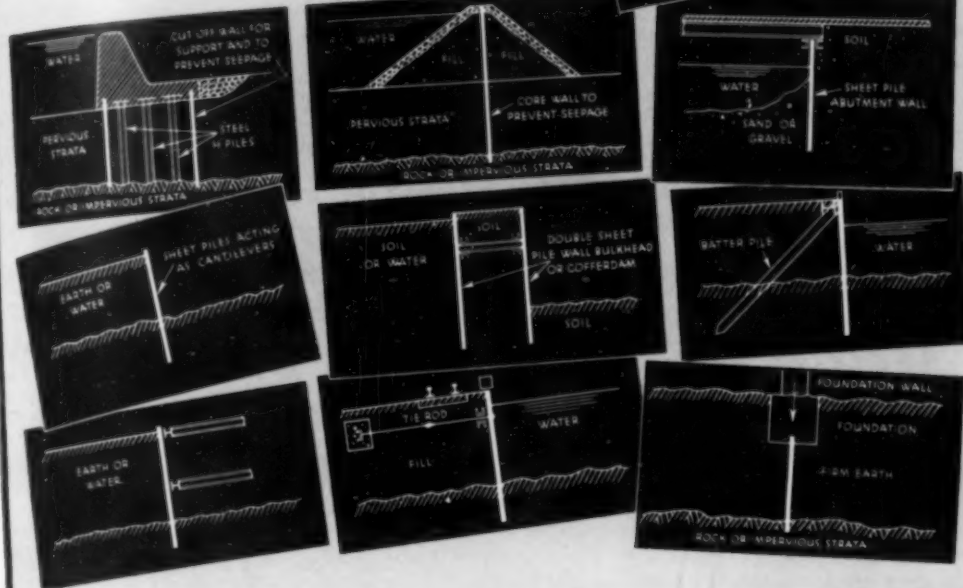 WATER
CUT OFF WALL FOR
SUPPORT AND TO
PREVENT SEEPAGE
PERVIOUS
STRATA
STEEL
H PILES
ROCK OR IMPERVIOUS STRATA
WATER
FILL
FILL
PERVIOUS STRATA
CORE WALL TO
PREVENT SEEPAGE
ROCK OR IMPERVIOUS STRATA
SOIL
WATER
SHEET PILE
ABUTMENT WALL
SAND OR
GRAVEL
EARTH OR
WATER
SHEET PILES ACTING
AS CANTILEVERS
SOIL
OR WATER
SOIL
DOUBLE SHEET
PILE WALL BULKHEAD
OR COFFERDAM
SOIL
BATTER PILE
WATER
EARTH OR
WATER
TIE ROD
WATER
FILL
FOUNDATION WALL
FOUNDATION
FIRM EARTH
ROCK OR IMPERVIOUS STRATA